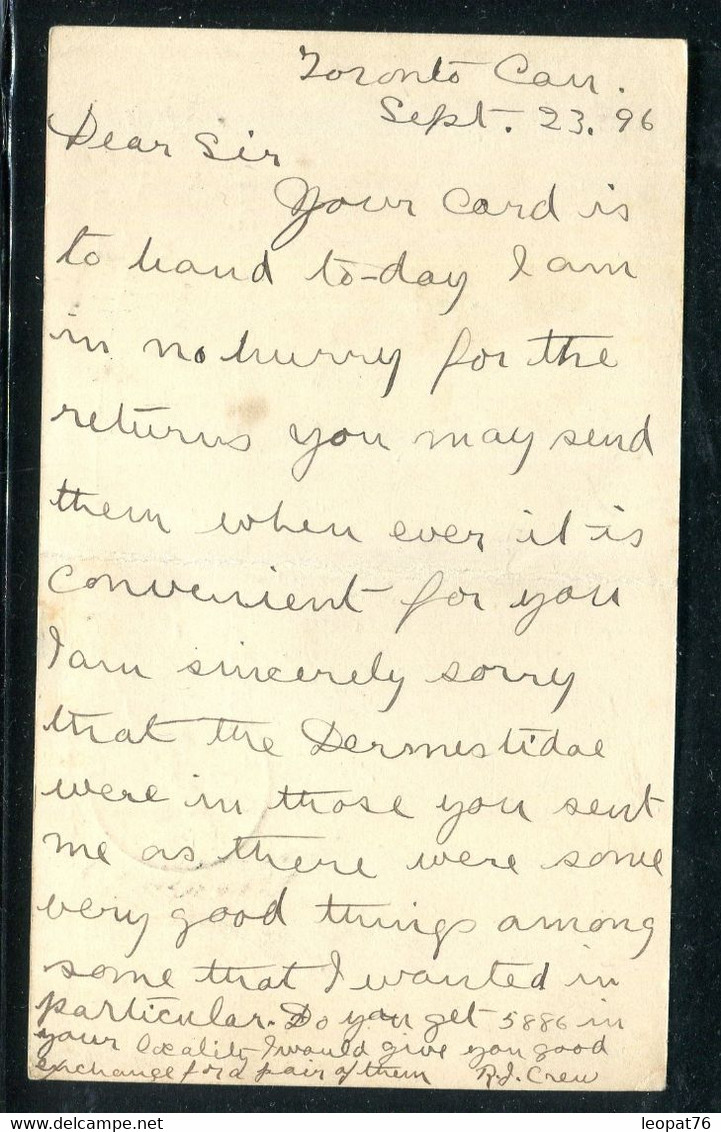 Toronto Can.
Sept. 23. 96
Dear Sir
Your card is
to hand to-day I am
in no hurry for the
returns you may send
them when ever it is
convenient for you
I am sincerely sorry
that the Dermestidae
were in those you sent
me as there were some
very good things among
some that I wanted in
particular. Do you get 5886 in
your locality I would give you good
exchange for a pair of them R.J. Crew
leopat76